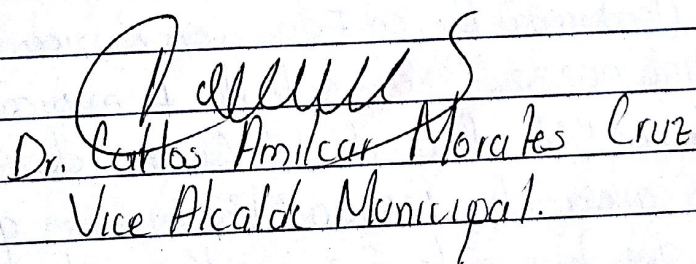 Dr. Carlos Amilcar Morales Cruz
Vice Alcalde Municipal.